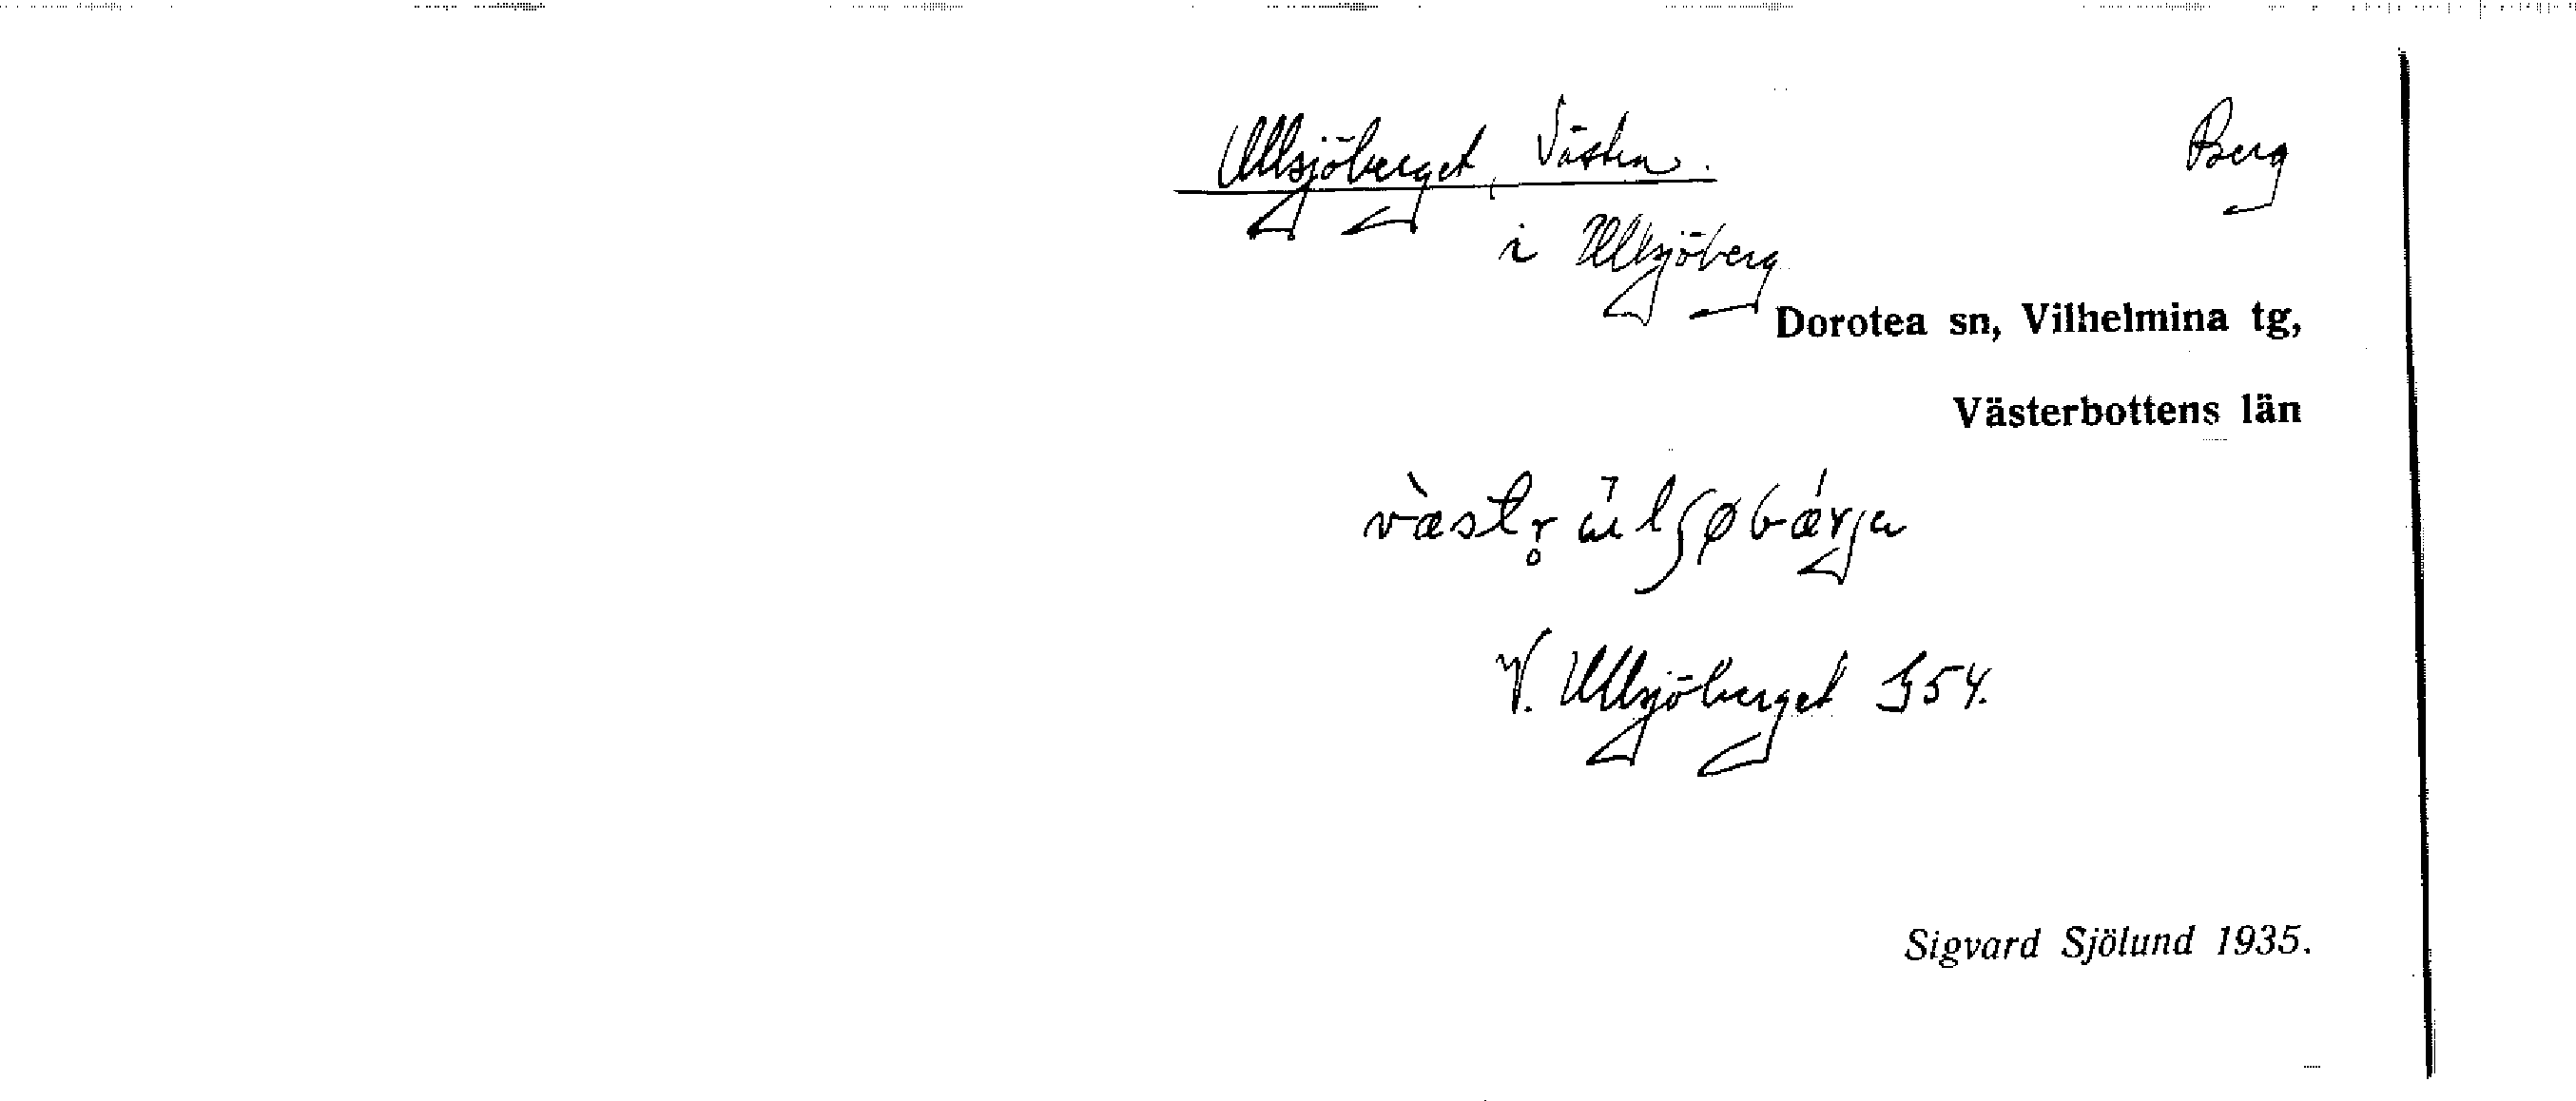 Ullsjöberget, Västra. Berg
i Ullsjöberg
Dorotea sn, Vilhelmina tg,
Västerbottens län
V. Ullsjöberget G54.
Sigvard Sjölund 1935.